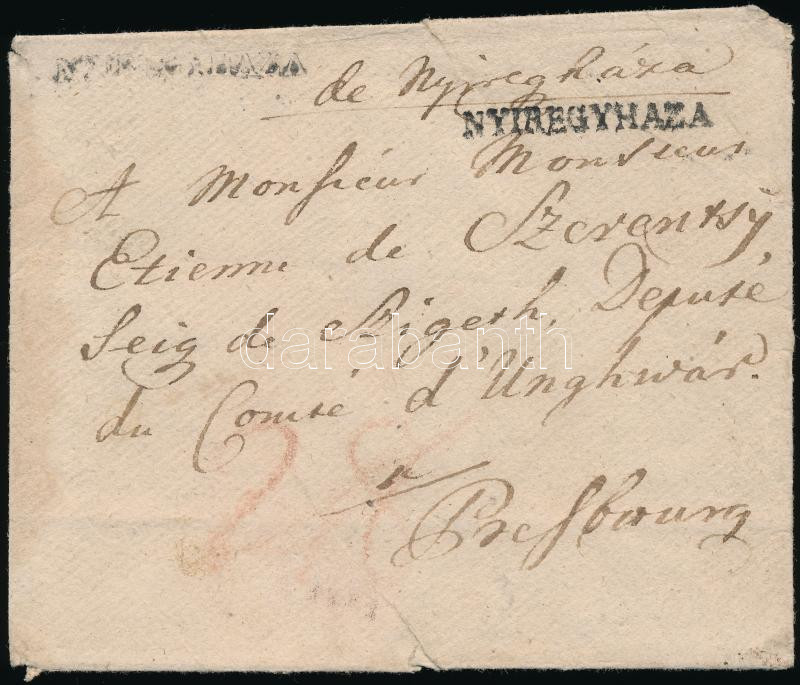 NYIREGYHAZA
de Nyiregháza
NYIREGYHAZA
A Monsieur Monsieur
Etienne de Szerentsÿ
Seig de Szigeth, Deputé
du Comté d'Unghwár.
darabanth
28
Presbourg